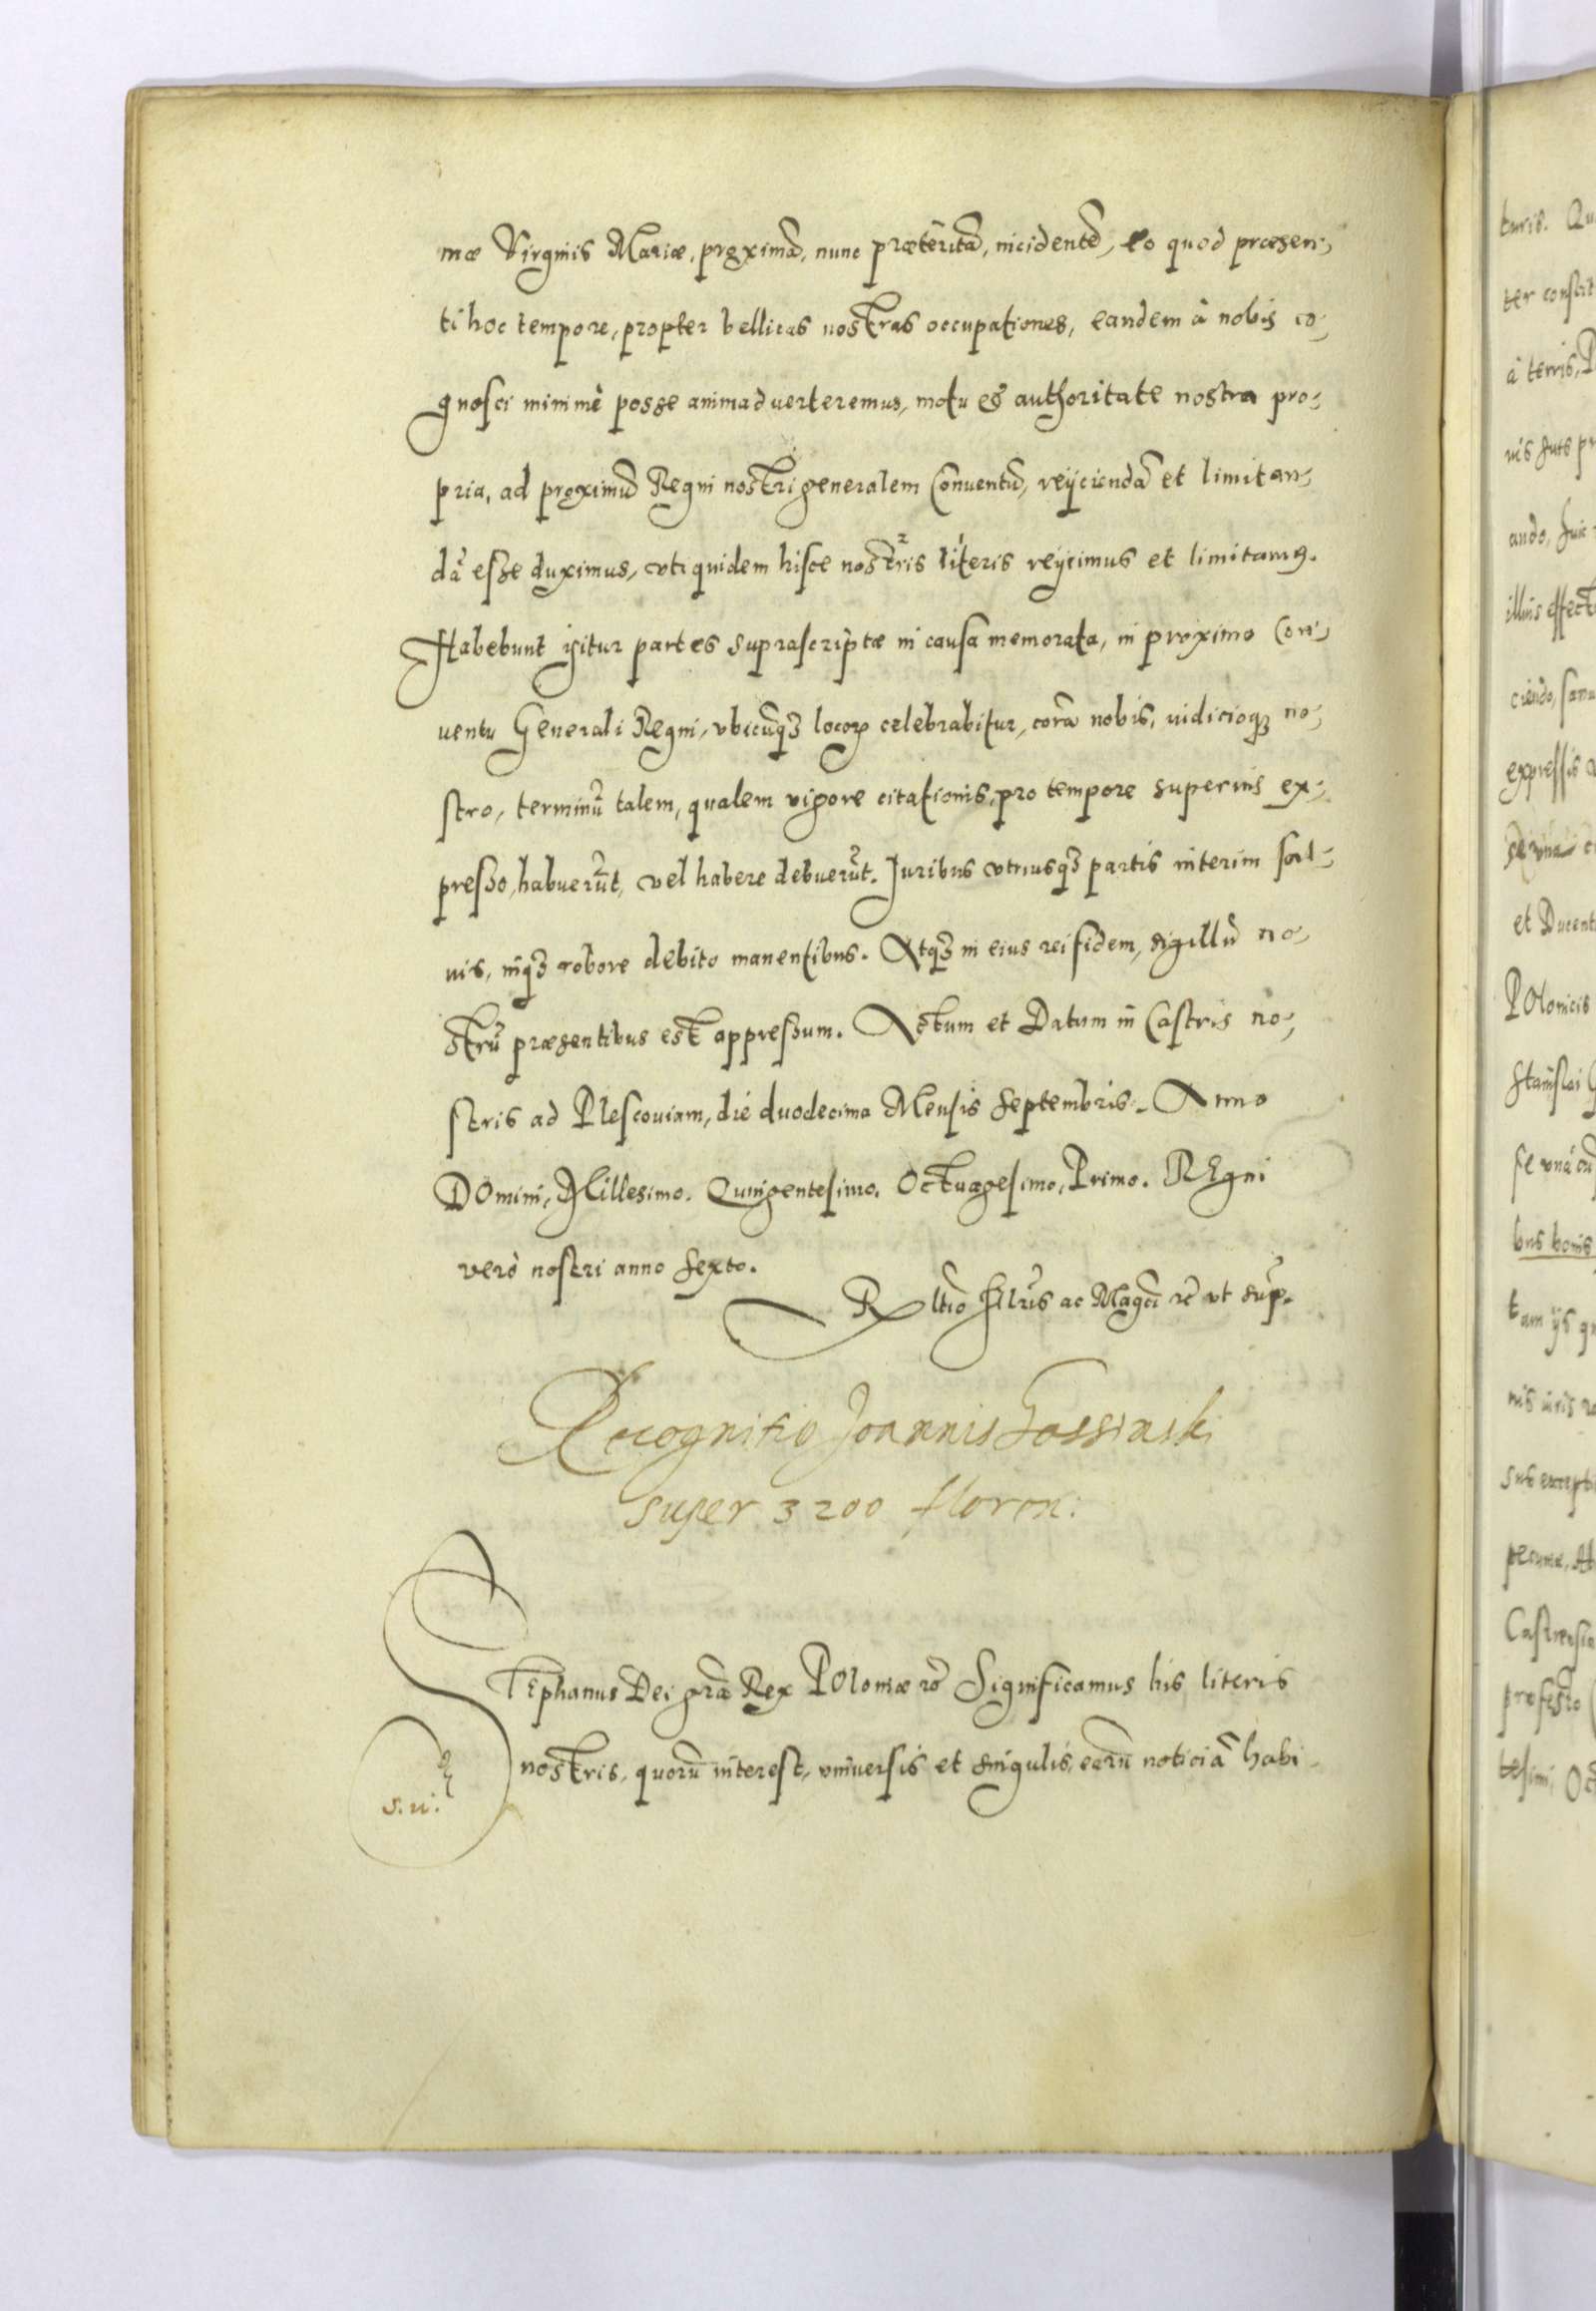 mæ Virginis Mariæ, proximã, nunc præteritã, incidentẽ, eo quod præsen-
ti hoc tempore, propter bellicas nostras occupationes, eandem à nobis co-
gnosci minimè posse animaduerteremus, motu et authoritate nostra pro-
pria, ad proximũ Regni nostri generalem Conuentũ, reijciendã et limitan-
dã esse duximus, vti quidem hisce nostris literis reijcimus et limitamus.
Habebunt igitur partes suprascriptæ in causa memorata, in proximo Con-
uentu Generali Regni, vbicũqȝ locorꝝ celebrabitur, corã nobis, iudicioqȝ no-
stro, terminũ talem, qualem vigore citationis, pro tempore superius ex-
presso, habuerũt, vel habere debuerũt. Juribus vtriusqȝ partis interim sal-
uis, inqȝ robore debito manentibus. Atqȝ in eius rei fidem, sigillũ no-
strũ præsentibus est appressum. Actum et Datum in Castris no-
stris ad Plescouiam, die duodecima Mensis Septembris. Anno
DOmini, Millesimo. Quingentesimo. Octuagesimo, Primo. REgni
verò nostri anno sexto.
Rltio Illris ac Magci rc vt sup.
Recognitio Joannis
super 3200 floren:
STEphanus Dei grã Rex POloniæ rc Significamus his literis
nostris, quorũ interest, vniuersis et singulis, eorũ noticiã habi-
s. n.